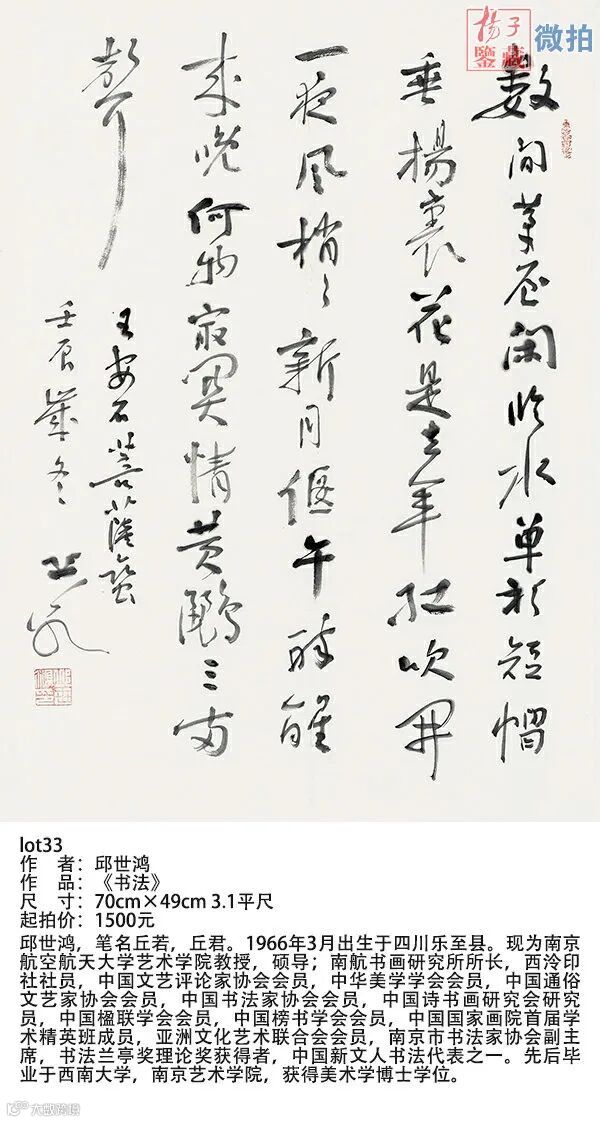 揚子
鑒藏
微拍
數间茅屋闲临水单衫短帽
垂楊裏花是去年红吹开
一夜风梢々新月偃午醉醒
来晚何物最関情黄鹂三两
聲
王安石菩薩蛮
壬辰岁冬
lot33
作　者：邱世鸿
作　品：《书法》
尺　寸：70cm×49cm 3.1平尺
起拍价：1500元
邱世鸿，笔名丘若，丘君。1966年3月出生于四川乐至县。现为南京
航空航天大学艺术学院教授，硕导；南航书画研究所所长，西泠印
社社员，中国文艺评论家协会会员，中华美学学会会员，中国通俗
文艺家协会会员，中国书法家协会会员，中国诗书画研究会研究
员，中国楹联学会会员，中国榜书学会会员，中国国家画院首届学
术精英班成员，亚洲文化艺术联合会会员，南京市书法家协会副主
席，书法兰亭奖理论奖获得者，中国新文人书法代表之一。先后毕
业于西南大学，南京艺术学院，获得美术学博士学位。
大数跨境